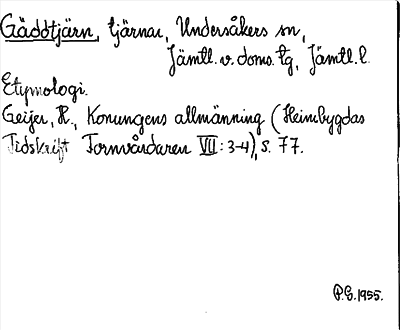 Gäddtjärn, tjärnar, Undersåkers sn,
Jämtl. v. doms. tg, Jämtl. l.
Etymologi.
Geijer, H., Konungens allmänning (Heimbygdas
Tidskrift Fornvårdaren VII: 3-4), s. 77.
P.G. 1955.